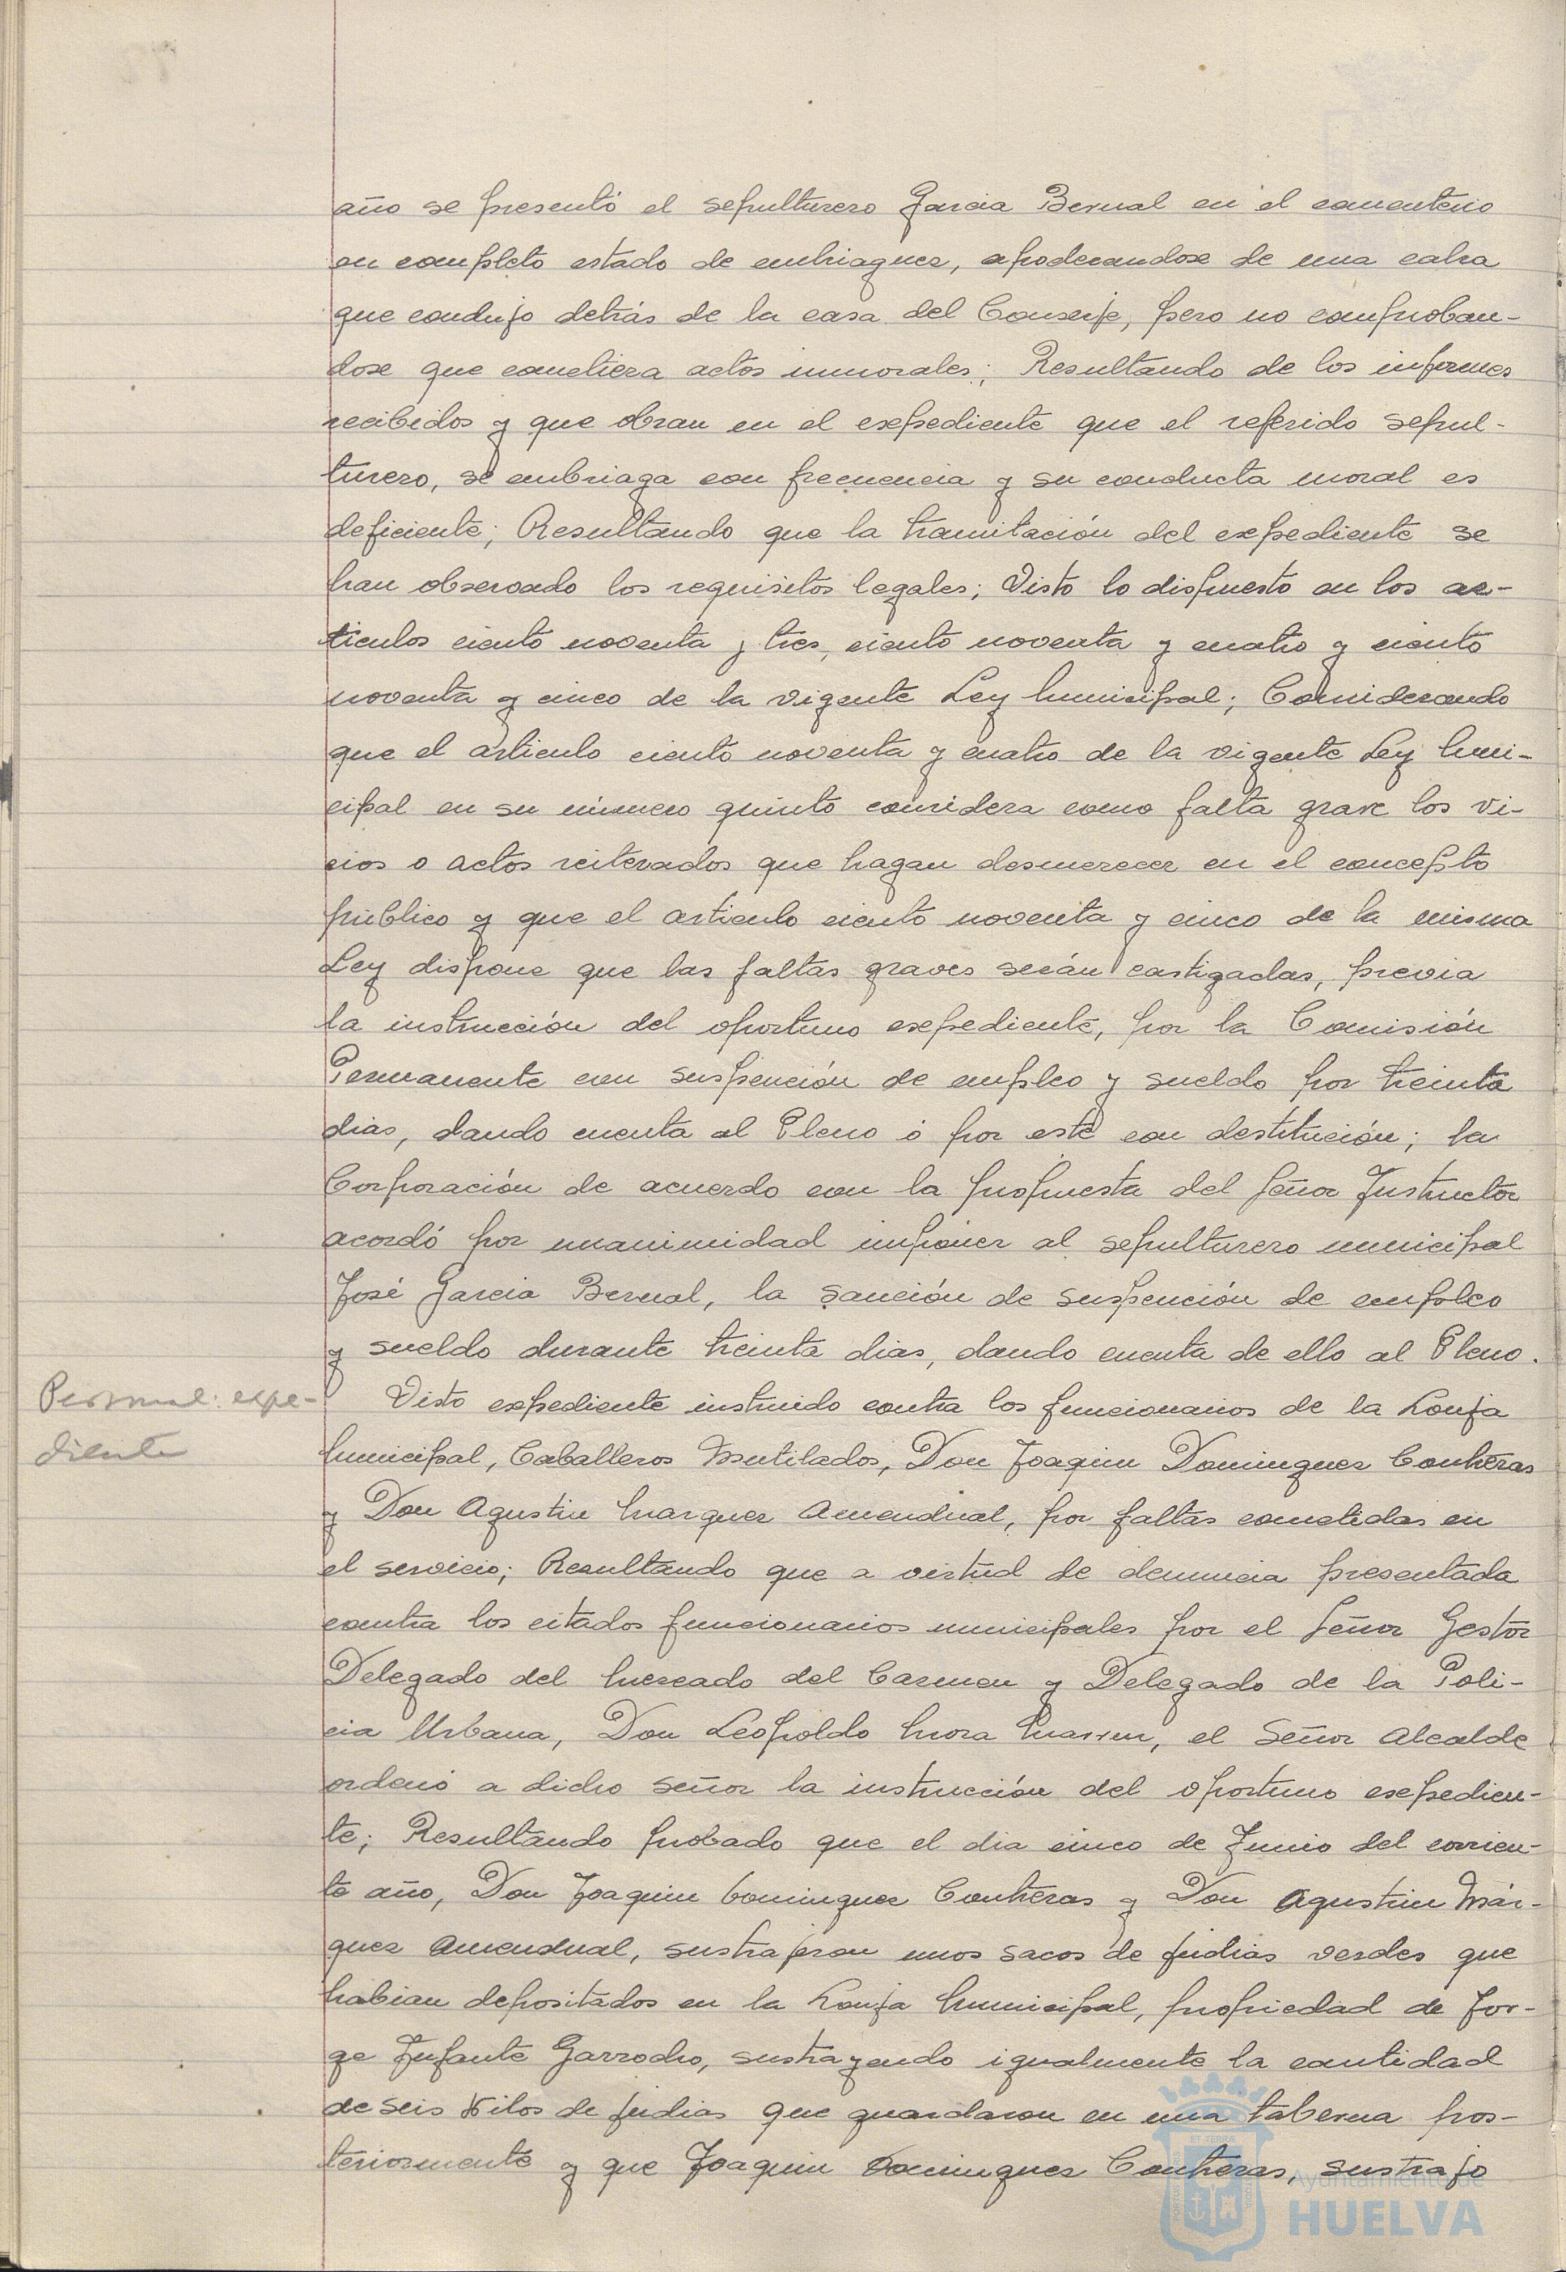 año se presentó el sepulturero Garcia Bernal en el cementerio
en completo estado de embriaguez, apoderandose de una cabra
que condujo detrás de la casa del Conserje, pero no comproban-
dose que cometiera actos inmorales; Resultando de los informes
recibidos y que obran en el expediente que el referido sepul-
turero, se embriaga con frecuencia y su conducta moral es
deficiente; Resultando que la tramitación del expediente se
han observado los requisitos legales; Visto lo dispuesto en los ar-
ticulos ciento noventa y tres, ciento noventa y cuatro y ciento
noventa y cinco de la vigente Ley Municipal; Considerando
que el articulo ciento noventa y cuatro de la vigente Ley Muni-
cipal en su número quinto considera como falta grave los vi-
cios o actos reiterados que hagan desmerecer en el concepto
público y que el articulo ciento noventa y cinco de la misma
Ley dispone que las faltas graves serán castigadas, previa
la instrucción del oportuno expediente, por la Comisión
Permanente con suspención de empleo y sueldo por treinta
dias, dando cuenta al Pleno ó por este con destitución; la
Corporación de acuerdo con la propuesta del Señor Instructor
acordó por unanimidad imponer al sepulturero municipal
José Garcia Bernal, la sanción de suspención de empleo
y sueldo durante treinta dias, dando cuenta de ello al Pleno.
Personal: expe-
diente
Visto expediente instruido contra los funcionarios de la Lonja
Municipal, Caballeros Mutilados, Don Joaquin Dominguez Contreras
y Don Agustin Marquez Amendual, por faltas cometidas en
el servicio; Resultando que a virtud de denuncia presentada
contra los citados funcionarios municipales por el Señor Gestor
Delegado del Mercado del Carmen y Delegado de la Poli-
cia Urbana, Don Leopoldo Mora, el Señor Alcalde
ordenó a dicho señor la instrucción del oportuno expedien-
te; Resultando probado que el dia cinco de Junio del corrien-
te año, Don Joaquin Dominguez Contreras y Don Agustin Már-
quez Amendual, sustrajeron unos sacos de judias verdes que
habian depositados en la Lonja Municipal, propiedad de Jor-
ge Infante Garrocho, sustrayendo igualmente la cantidad
de seis Kilos de judias que guardaron en una taberna pos-
teriormente y que Joaquin Dominguez Contreras, sustrajo
Ayuntamiento de
HUELVA